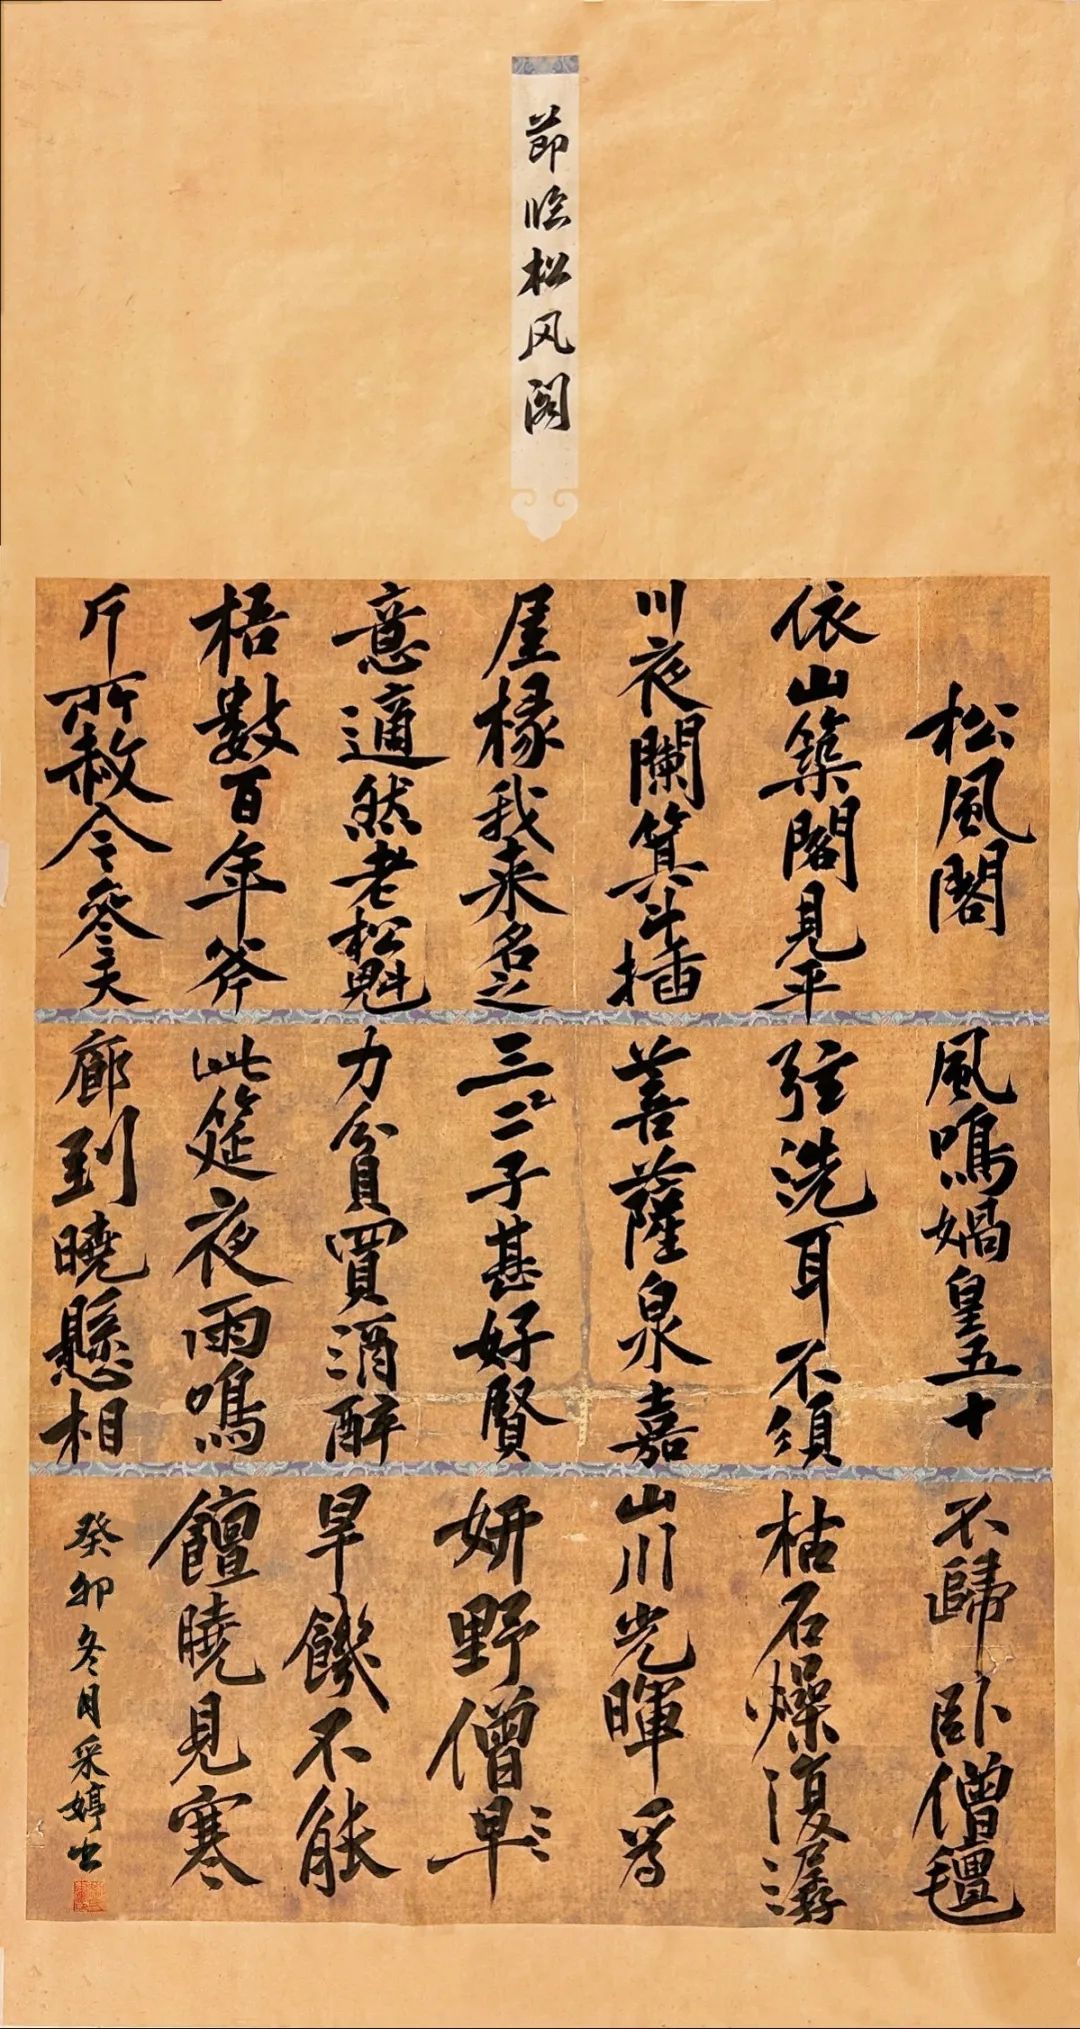 節临松风阁
松風閣
依山築閣見平
川夜闌箕斗插
屋椽我来名之
意適然老松魁
梧數百年斧
斤所赦今参天
風鳴媧皇五十
弦洗耳不須
菩薩泉嘉
三二二子甚好賢
力貧買酒醉
此筵夜雨鳴
廊到曉懸相
不歸卧僧氊
枯石燥復潺
山川光暉為
妍野僧早
旱饑不能
饘曉見寒
癸卯冬月采婷书